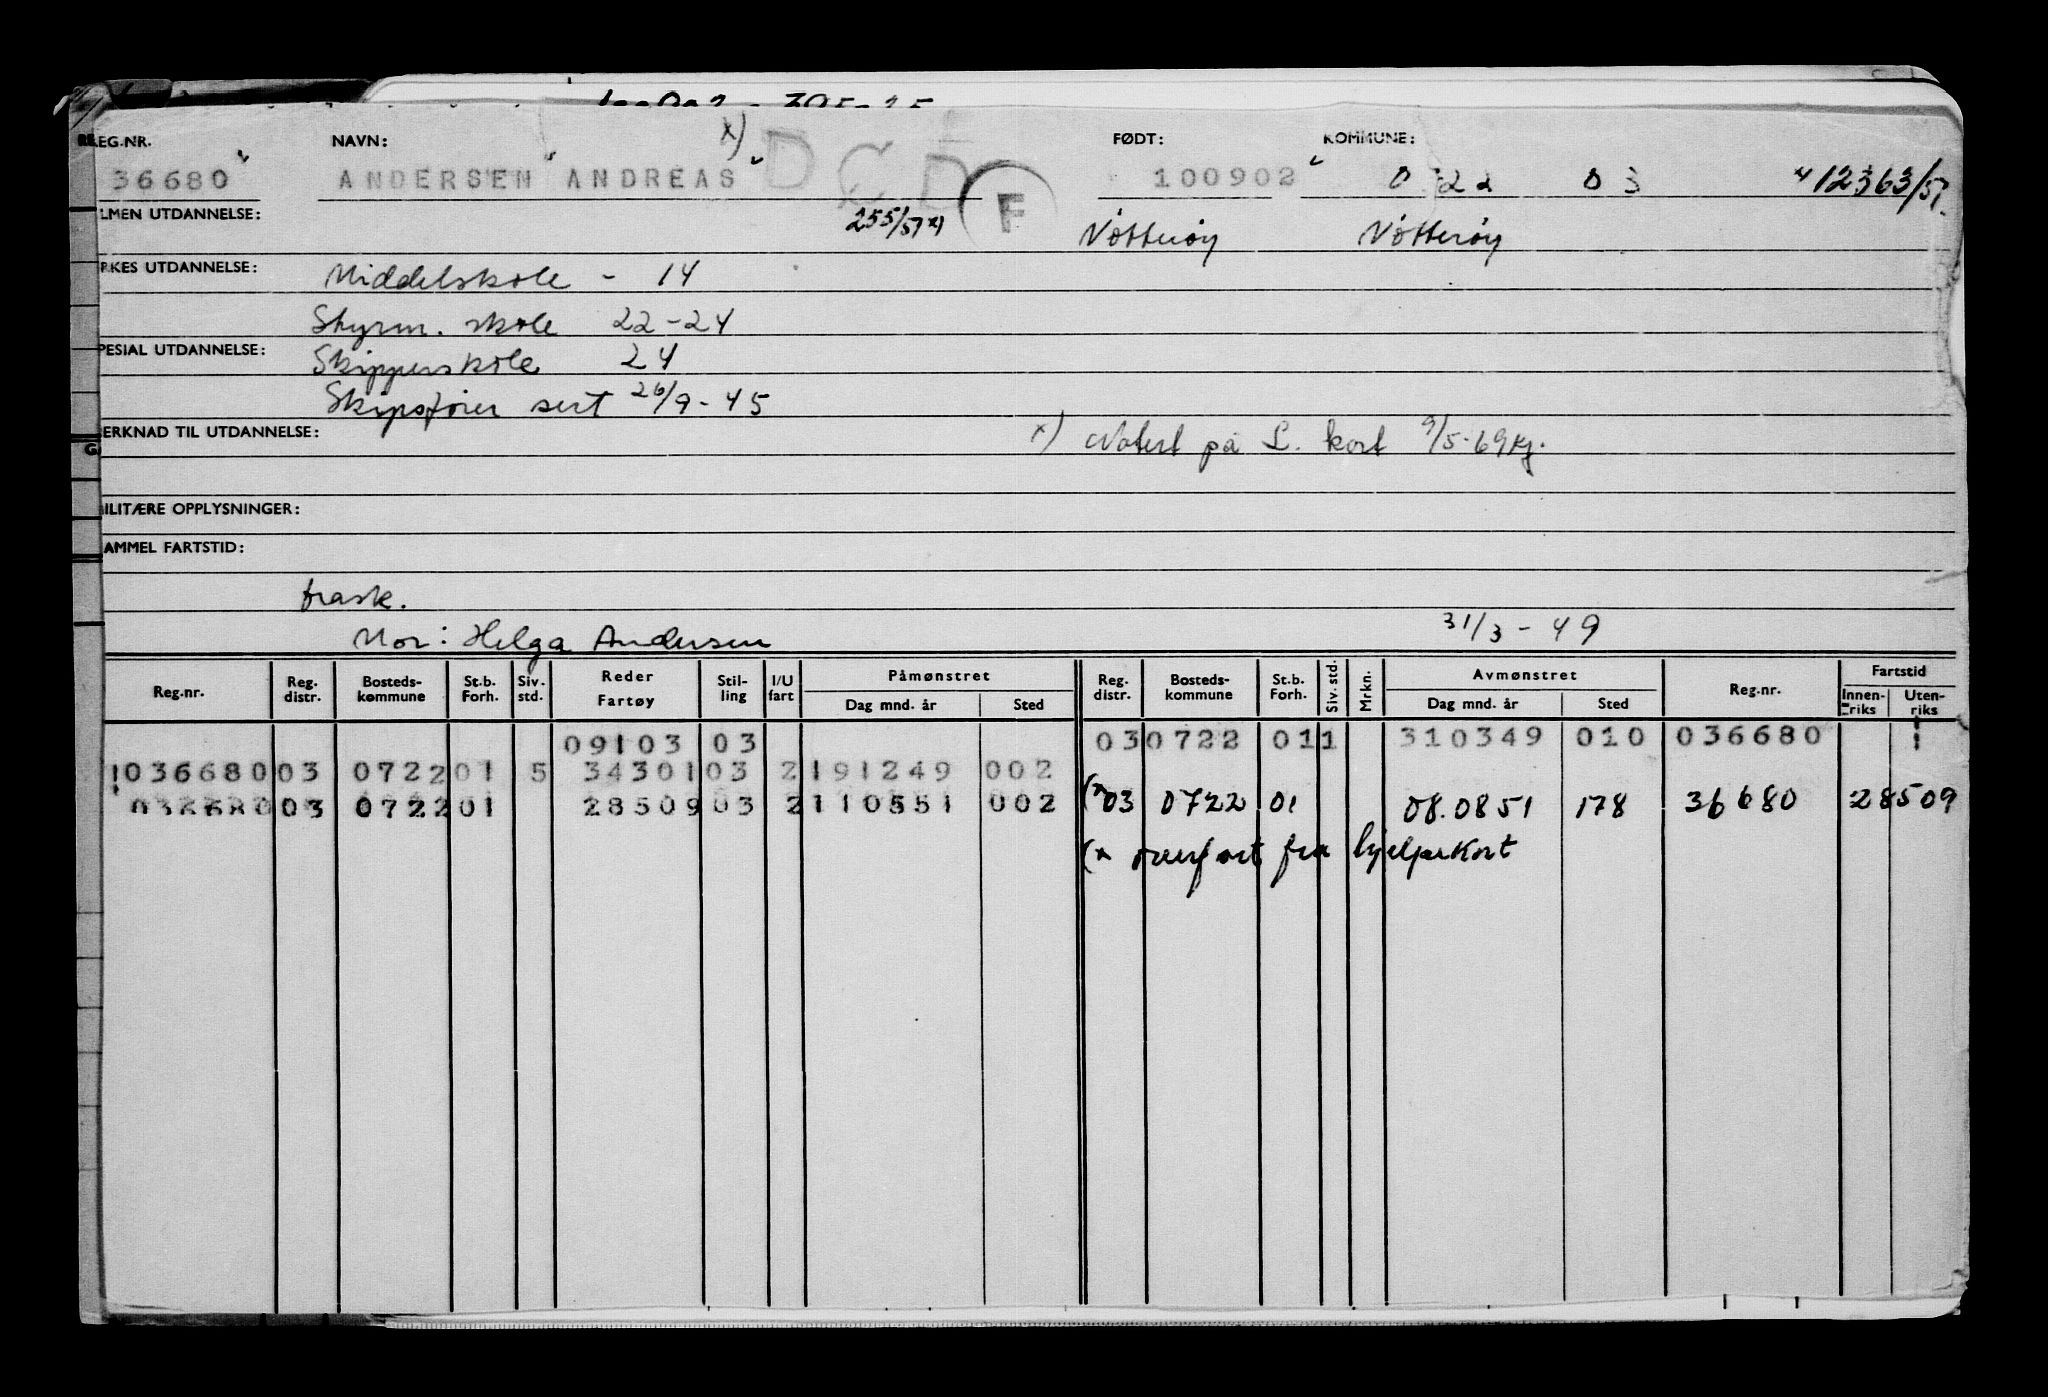 REG.NR. NAVN: x) FØDT: KOMMUNE:
36680 ANDERSEN ANDREAS DCD F 100902 0722 03 12363/57.
ALMEN UTDANNELSE: 255/57 x) Nøtterøy Nøtterøy
YRKES UTDANNELSE: Middelskole - 14
Styrm. skole 22-24
SPESIAL UTDANNELSE: Skipperskole 24
Skipsfører sert 26/9-45
MERKNAD TIL UTDANNELSE: x) Notert på S. kort 9/5-69 Kj.
MILITÆRE OPPLYSNINGER:
GAMMEL FARTSTID:
frask.
Mor: Helga Andersen 31/3-49
Reg.nr. Reg. distr. Bosteds-kommune St.b. Forh. Siv. std. Reder Fartøy Stil-ling I/U fart Påmønstret Dag mnd. år Sted Reg. distr. Bosteds-kommune St.b. Forh. Siv. std. Mrkn. Avmønstret Dag mnd. år Sted Reg.nr. Fartstid Innen-riks Uten-riks
09103 03 03 0722 01 1 310349 010 036680
036680 03 0722 01 5 34301 03 2 191249 002
036680 03 0722 01 28509 03 2 110551 002 (x 03 0722 01 08.0851 178 36680 28509
(x overført fra hjelpekort